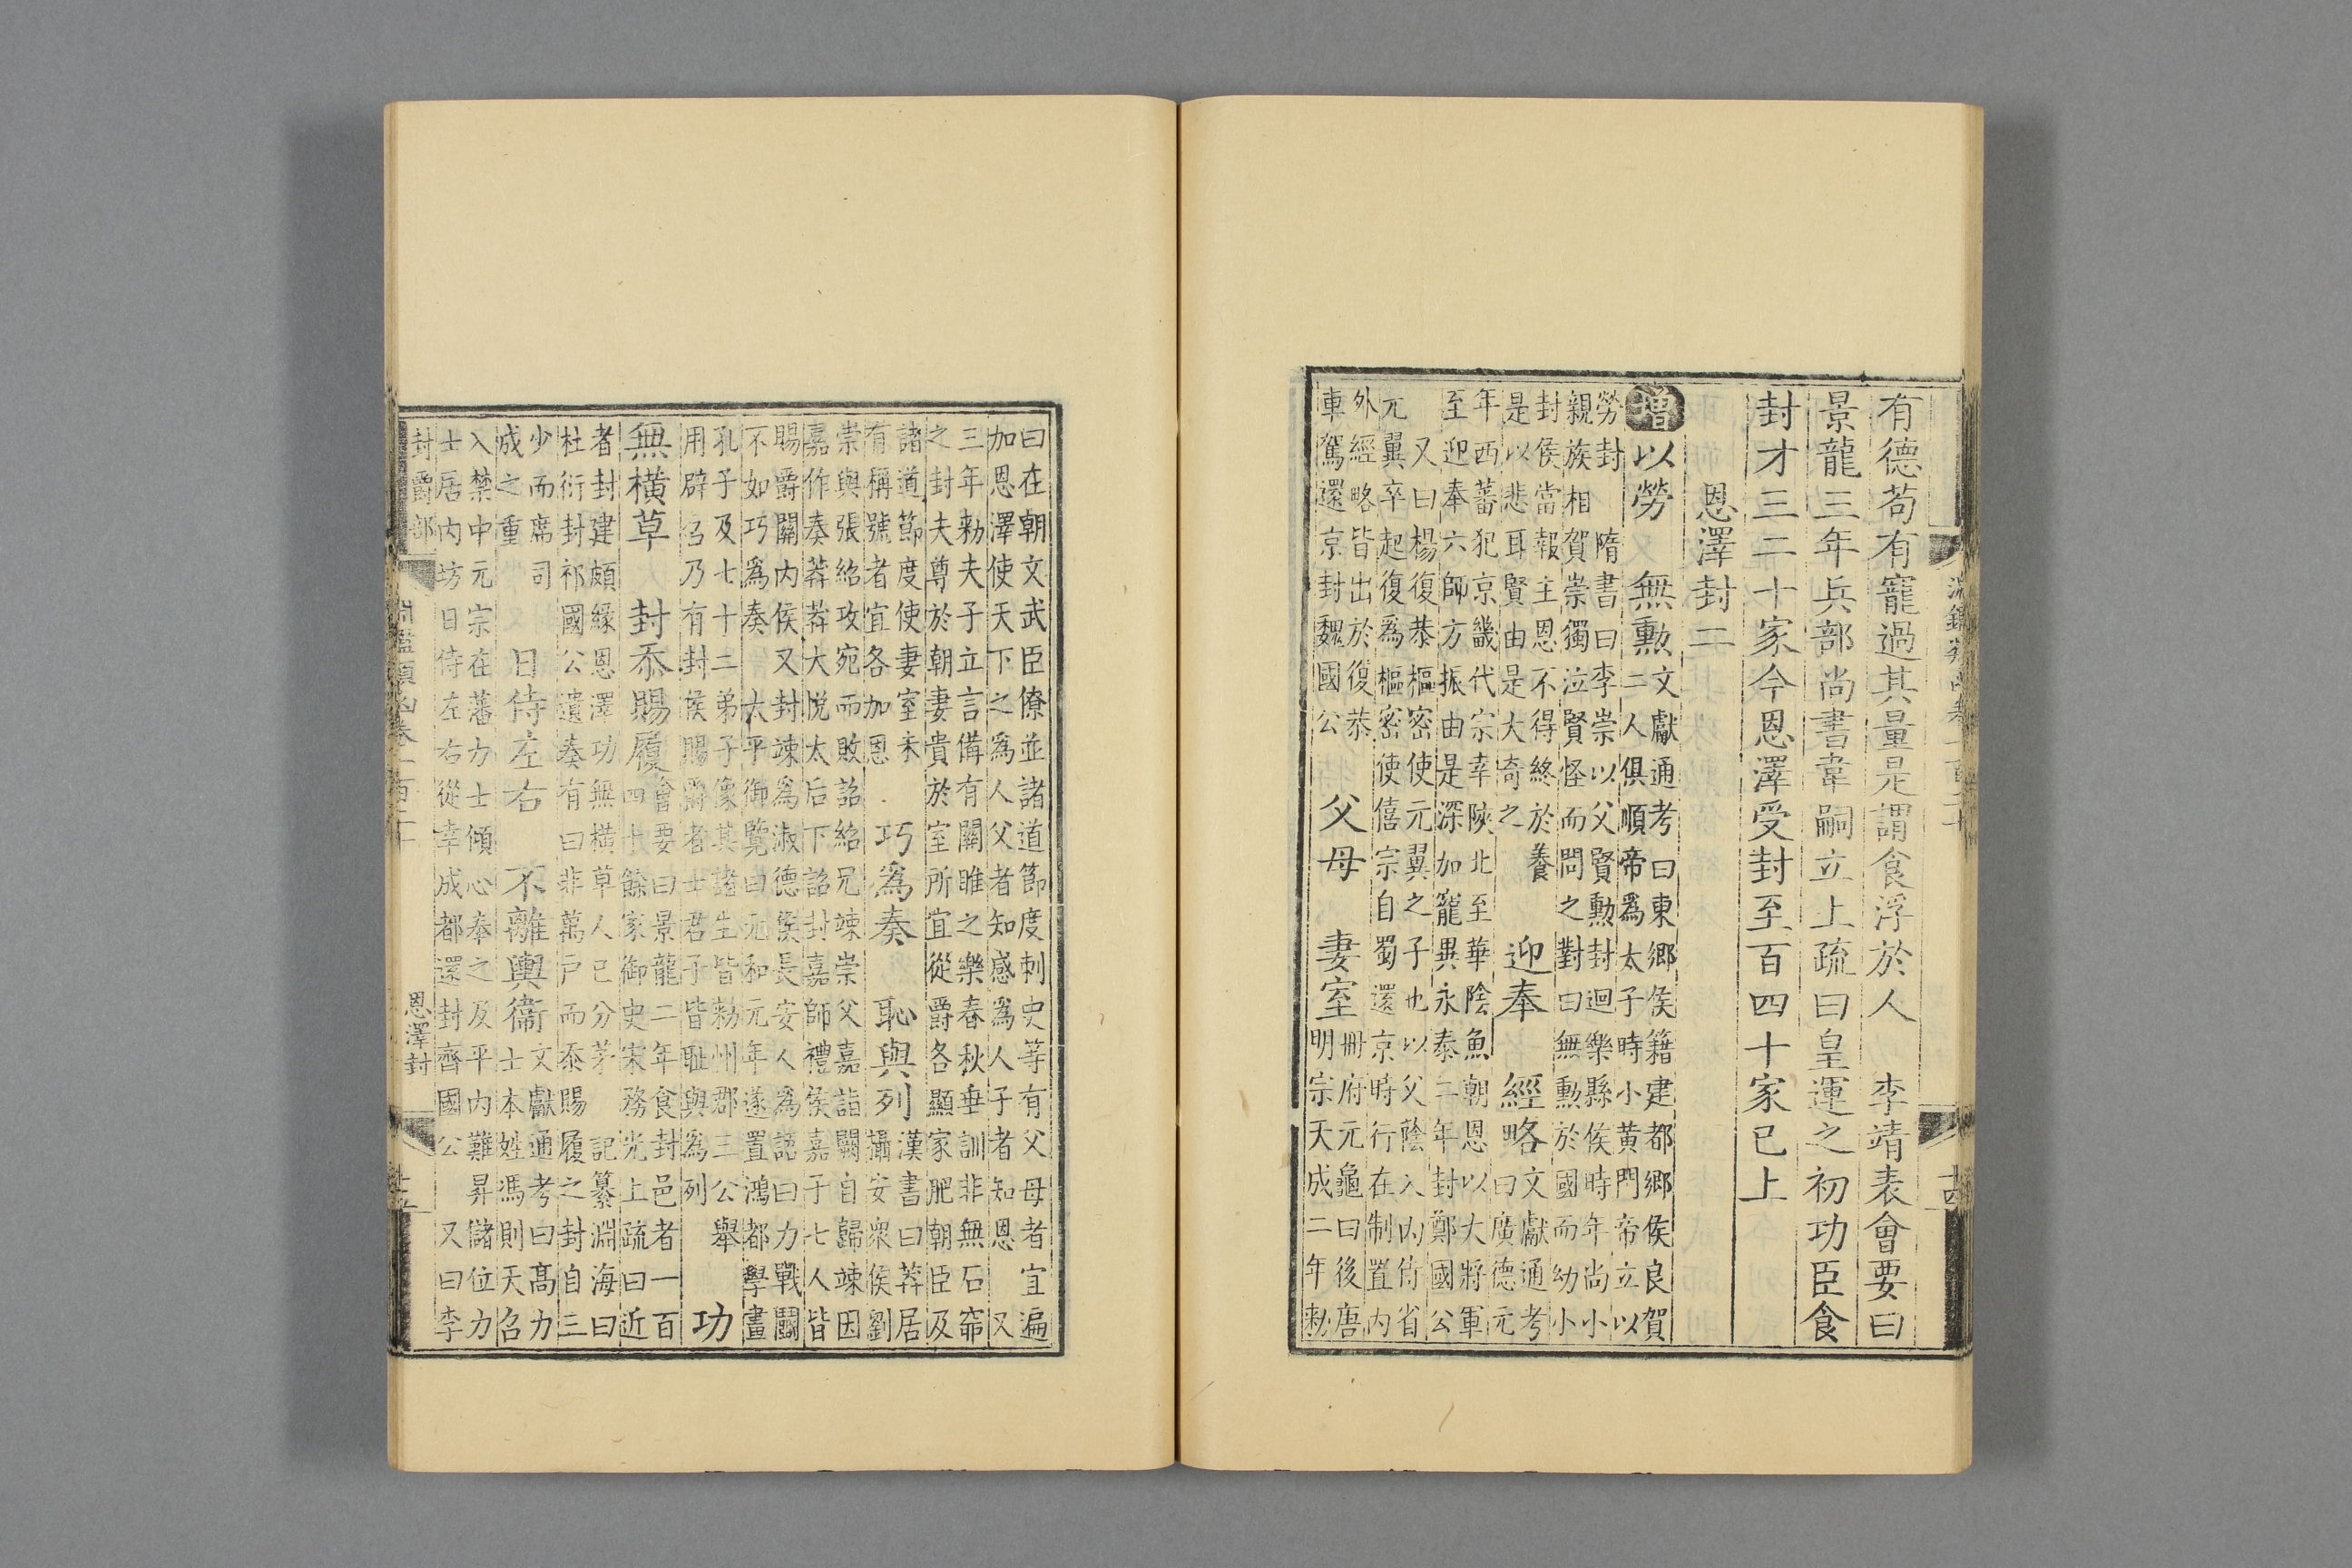 有德苟有寵過其量是謂食浮於人　李靖表會要曰
景龍三年兵部尚書韋嗣立上疏曰皇運之初功臣食
封才三二十家今恩澤受封至百四十家已上
恩澤封二
增以勞　無勲
文獻通考曰東鄉侯籍建都鄉侯良賀
二人俱順帝爲太子時小黃門帝立以
勞封　隋書曰李崇以父賢勲封迴樂縣侯時年尚小
親族相賀崇獨泣賢怪而問之對曰無勲於國而幼小
封侯當報主恩不得終於養
是以悲耳賢由是大奇之
迎奉　經略
文獻通考
曰廣德元
年西蕃犯京畿代宗幸陝北至華陰魚朝恩以大將軍
至迎奉六師方振由是深加寵異永泰二年封鄭國公
又曰楊復恭樞密使元翼之子也以父蔭入内侍省
元翼卒起復爲樞密使僖宗自蜀還京時行在制置内
外經略皆出於復恭
車駕還京封魏國公
父母　妻室
冊府元龜曰後唐
明宗天成二年勑
曰在朝文武臣僚並諸道節度刺史等有父母者宜遍
加恩澤使天下之爲人父者知感爲人子者知恩　又
三年勑夫子立言備有關雎之樂春秋垂訓非無石窌
之封夫尊於朝妻貴於室所宜從爵各顯家肥朝臣及
諸道節度使妻室未
有稱號者宜各加恩
巧爲奏　恥與列
漢書曰莽居
攝安衆侯劉
崇與張紹攻宛而敗詔紹兄竦崇父嘉詣闕自歸竦因
嘉作奏莽莽大悅太后下詔封嘉師禮侯嘉子七人皆
賜爵關内侯又封竦爲淑德侯長安人爲語曰力戰鬭
不如巧爲奏　太平御覽曰元和元年遂置鴻都學畫
孔子及七十二弟子像其諸生皆勑州郡三公舉
用辟召乃有封侯賜爵者士君子皆耻與爲列
功
無橫草　封忝賜履
會要曰景龍二年食封邑者一百
四十餘家御史宋務光上疏曰近
者封建頗緣恩澤功無橫草人已分茅　記纂淵海曰
杜衍封祁國公遺奏有曰非萬戶而忝賜履之封自三
少而席司
成之重
日侍左右　不離輿衞
文獻通考曰高力
士本姓馮則天召
入禁中元宗在藩力士傾心奉之及平内難昇儲位力
士居内坊日侍左右從幸成都還封齊國公　又曰李
封爵部　淵鑑類函卷一百二十　恩澤封